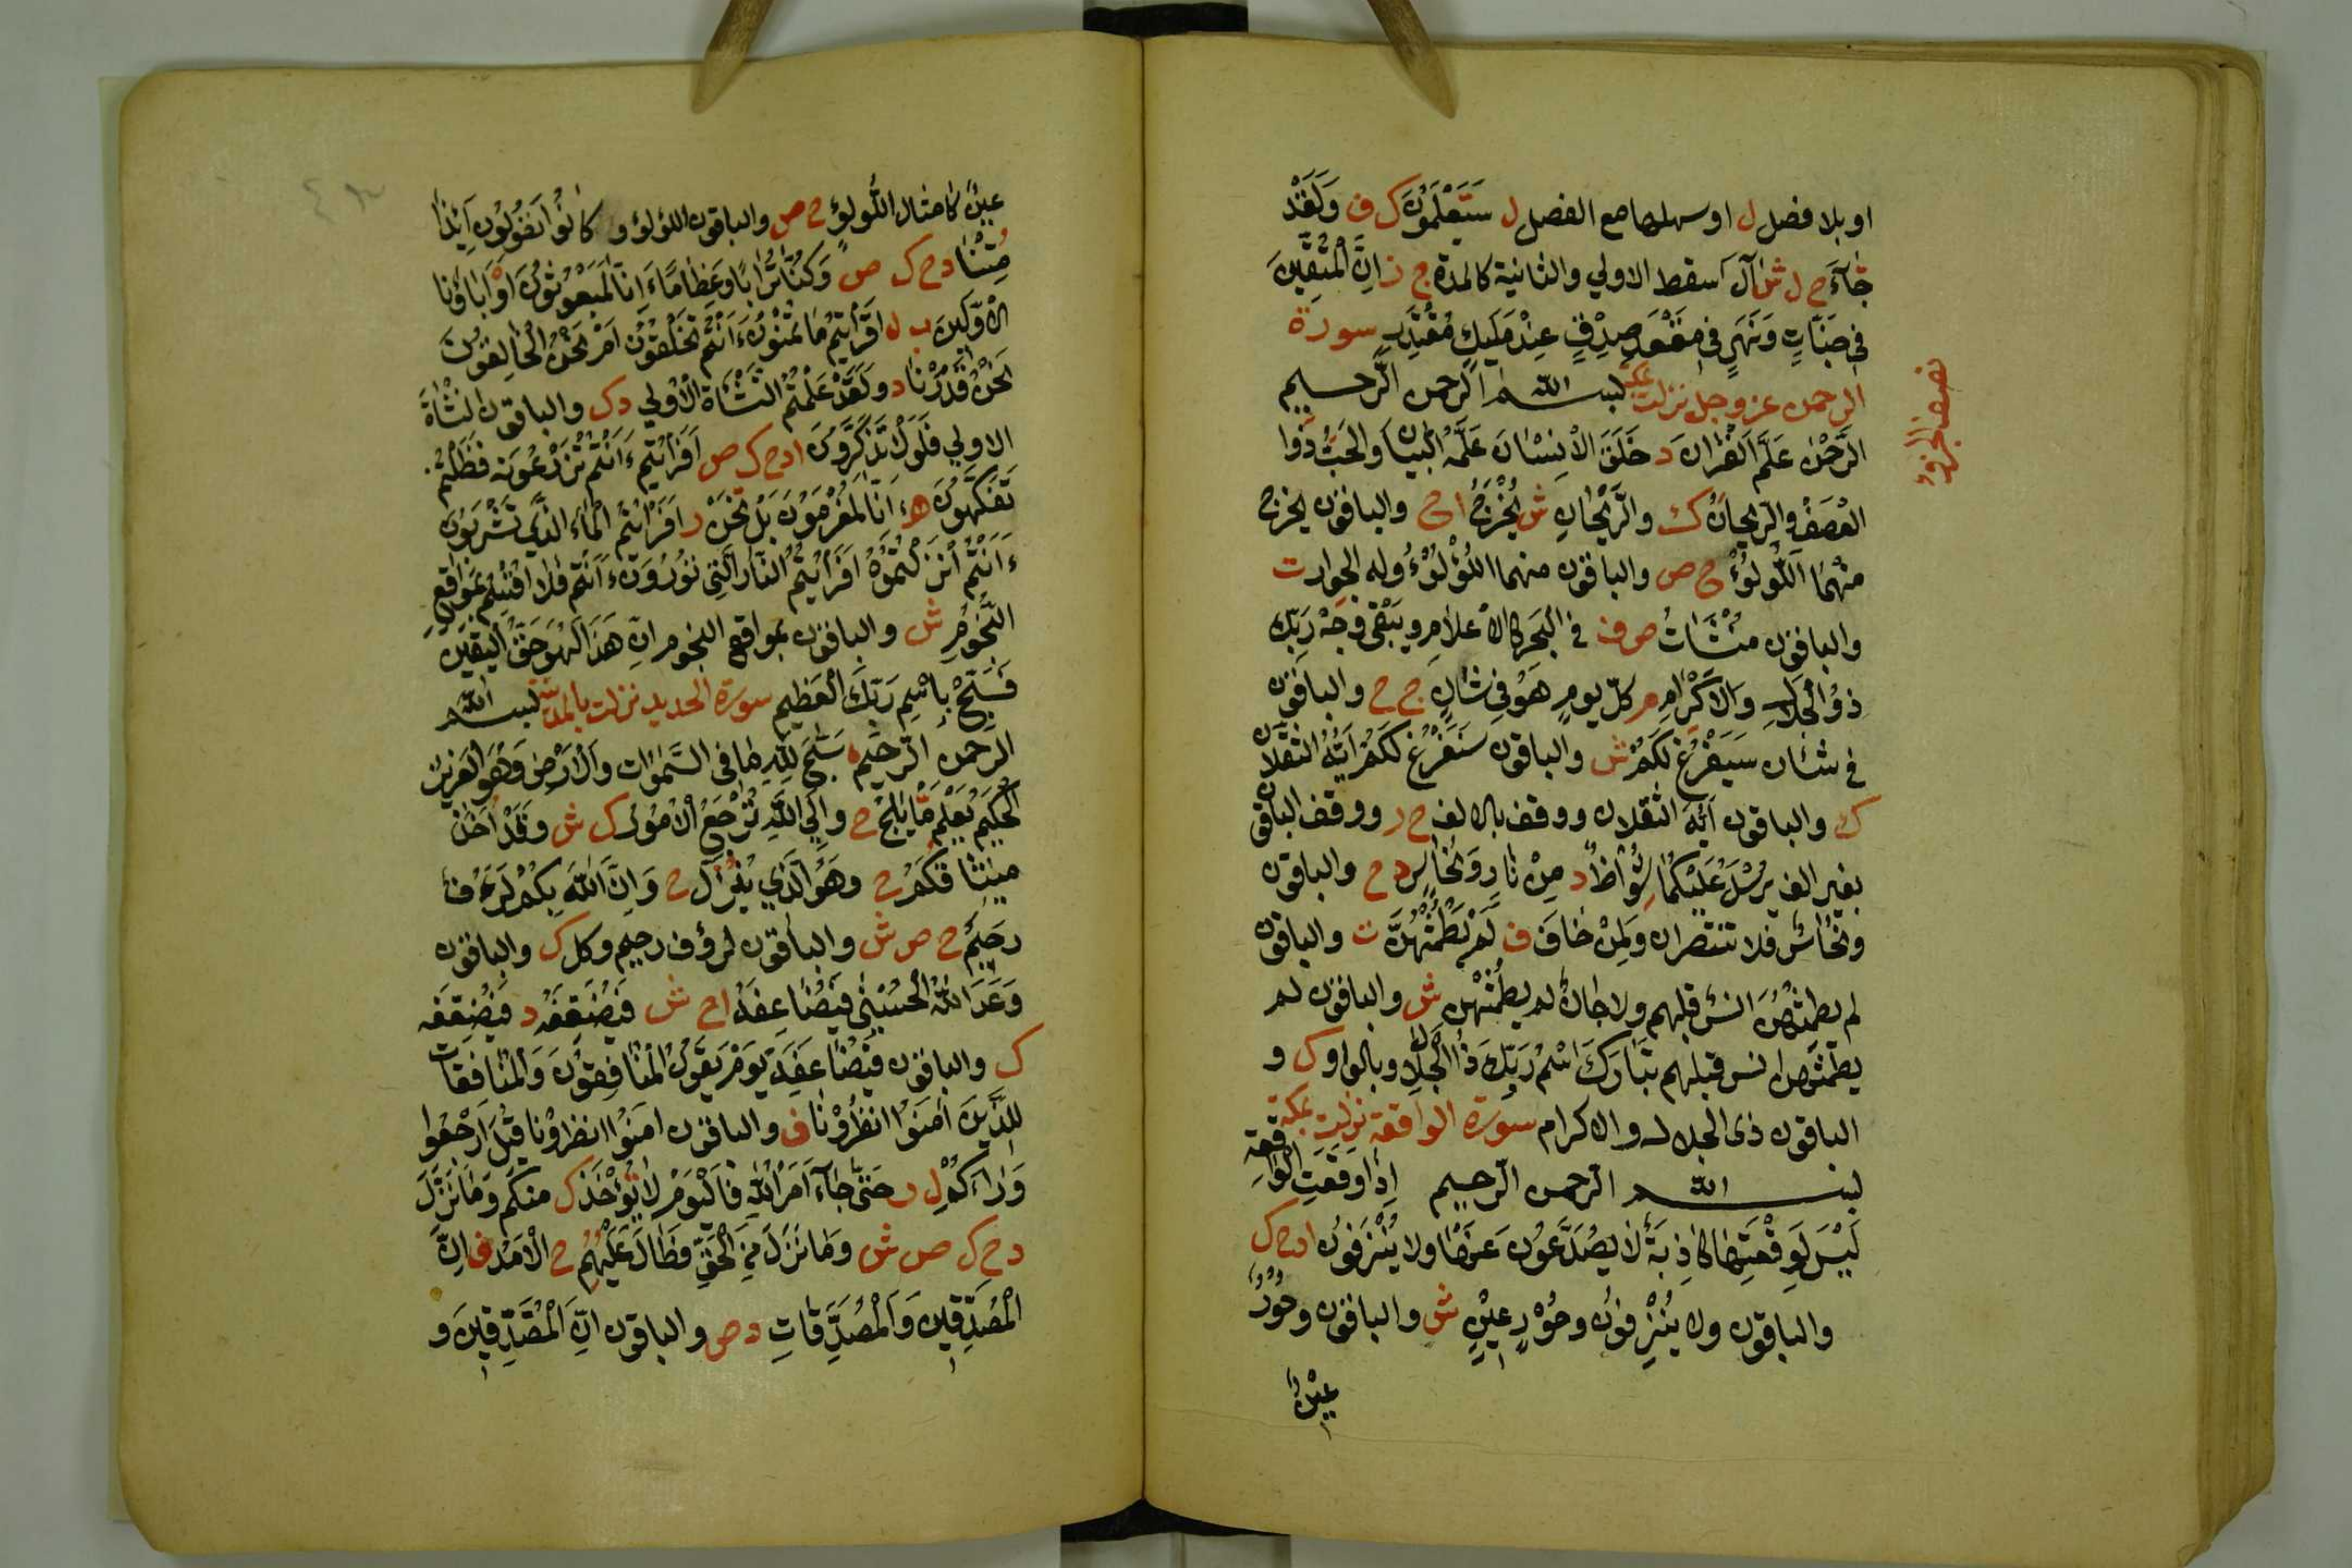 او بلا فصل ل او سهلها مع الفصل ل سَتَعْلَمُونَ ك ف وَلَقَدْ
جَآءَ ح ل ش آل اسقط الاولي والثانية كالمدة ج ز اِنَّ الْمُتَّقِينَ
فِي جَنَّاتٍ وَنَهَرٍ فِي مَقْعَدِ صِدْقٍ عِنْدَ مَلِيكٍ مُقْتَدِرٍ سورة
الرحمن عز وجل نزلت بمكة بسم الله الرحمن الرحيم
نصف الجزو
الرَّحْمٰنُ عَلَّمَ الْقُرَانَ د خَلَقَ الْاِنْسَانَ عَلَّمَهُ الْبَيَانَ وَالْحَبُّ ذُوا
الْعَصْفِ والرّيحانُ ك والرَّيْحَانِ ش يُخْرَجُ ا ح والباقون يخرج
مِنْهُمَا اللُّولُوُ ح ص والباقون منهما اللُّؤْلُؤُ وله الجوار ت
والباقون منشَاتُ ص ف في البَحر كالاعلام ويَبْقى وَجْهُ رَبِّكَ
ذُو الْجَلَالِ وَالاكْرَامِ م كلّ يومٍ هُوَ فِي شَانٍ ج ح والباقون
في شَان سَيَفْرُغُ لَكُمْ ش والباقون سَنَفْرُغُ لَكُمْ اَيُّهُ الثقلان
ك والباقون اَيُّهَ الثقلان ووقف بالالف ح ر ووقف الباقون
بغير الف يُرْسَلُ عَلَيْكُمَا شِوَاظٌ د مِنْ نَارٍ وَنُحَاسٍ د ح والباقون
ونُحَاسٌ فلا تنتصران وَلِمَنْ خَافَ ف لَمْ يَطْمُثْهُنَّ ت والباقون
لم يطمثهُنَّ انسٌ قبلهم ولا جانٌ لم يطمُثْهن ش والباقون لم
يطمثهن انس قبلهم تَبَارَكَ اسْمُ رَبِّكَ ذُو الْجَلَالِ وبالواو ك و
الباقون ذى الجلال والاكرام سورة الواقعة نزلت بمكة
بسم الله الرحمن الرحيم اِذَا وَقَعَتِ الْوَاقِعَة
لَيْسَ لِوَقْعَتِهَا كَاذِبَةٌ لَا يُصَدَّعُونَ عَنْهَا ولا يُنْزَفُون ا د ح ك
والباقون ولا يُنْزِفُون وحُوْرٍ عِيْنٍ ش والباقون وحُوْرٌ
عِيْنٌ
عِينٌ كامثال اللُّولوِ ح ص والباقون اللؤلؤ و كانُوا يَقُولُونَ اَئِذَا
مِتْنَا د ح ك ص وَكُنَّا تُرَابًا وعِظامًا ءَاِنَّا لَمَبْعُوثُونَ اَوْ اٰبَاؤُنَا
الاَوَّلِينَ ب ل افَرَاَيْتُمْ مَا تُمْنُونَ ءَاَنْتُمْ تَخْلُقُونَهُ اَمْ نَحْنُ الْخَالِقُونَ
نَحْنُ قَدَرْنَا د ولَقَدْ عَلِمْتُمُ النَّشَآةَ الاُولي د ك والباقون النَّشْاَةَ
الاولي فَلَوْلَا تَذَكَّرُونَ ا د ح ك ص اَفَرَاَيْتُمْ ءَاَنْتُمْ تَزْرَعُونَهُ فَظَلْتُمْ
تَفَكَّهُونَ ه ءَاِنَّا لَمُغْرَمُونَ بَلْ نَحْنُ ر اَفَرَاَيْتُمُ الْمَاءَ الَّذِي تَشْرَبُونَ
ءَاَنْتُمْ اَنْزَلْتُمُوهُ اَفَرَاَيْتُمُ النَّارَ الَّتِي تُورُونَ ءَاَنْتُمْ فلا اُقْسِمُ بمَوَاقِعِ
النُّجُومِ ش والباقون بمواقع النجوم اِنّ هَذَا لَهُوَ حَقُّ الْيَقِينِ
فَسَبِّحْ بِاسْمِ رَبِّكَ الْعَظِيمِ سورة الحديد نزلت بالمدينة بسم الله
الرحمن الرَّحِيمِ سَبَّحَ لِلّٰهِ مَا فِي السَّمٰوَاتِ وَالْاَرْضِ وَهُوَ الْعَزِيزُ
الْحَكِيمُ يَعْلَم مَّا يَلِجُ ح واِلَي اللّٰهِ تُرْجَعُ الْاُمُورُ ك ش وقَدْ اُخِذَ
مِيثَاقُكُمْ ح وهُوَ الَّذِي يُنْزِلُ ح وَاِنَّ اللّٰهَ بِكُمْ لَرَءُفٌ
رحِيمٌ ح ص ش والباقون لرؤف رحيم وكل ك والباقون
وَعَدَ اللّٰهُ الْحُسْنٰي فَيُضَاعِفُهُ ا ح ش فَيُضَعِّفُهُ د فَيُضَعِّفَهُ
ك والباقون فيُضَاعِفَهُ يَوْمَ يَقُولُ الْمُنَافِقُونَ وَالْمُنَافِقَاتُ
لِلَّذِينَ اٰمَنُوا انظُرُونَا ف والباقون امَنُوا انظرُونا قِيلَ ارْجِعُوا
وَرَاءَكُمْ ل ر حَتّٰى جَآءَ اَمْرُ اللّٰهِ فَالْيَوْمَ لَا تُؤْخَذُ ك منكم وَمَا نَزَّلَ
د ح ك ص ش وَمَا نَزَلَ مِنَ الْحَقِّ فَطَالَ عَلَيْهِمُ ح الْاَمَدُ ف اِنَّ
الْمُصَدِّقِينَ وَالْمُصَدِّقَاتِ د ص والباقون اِنّ الْمُصَّدِّقِينَ و